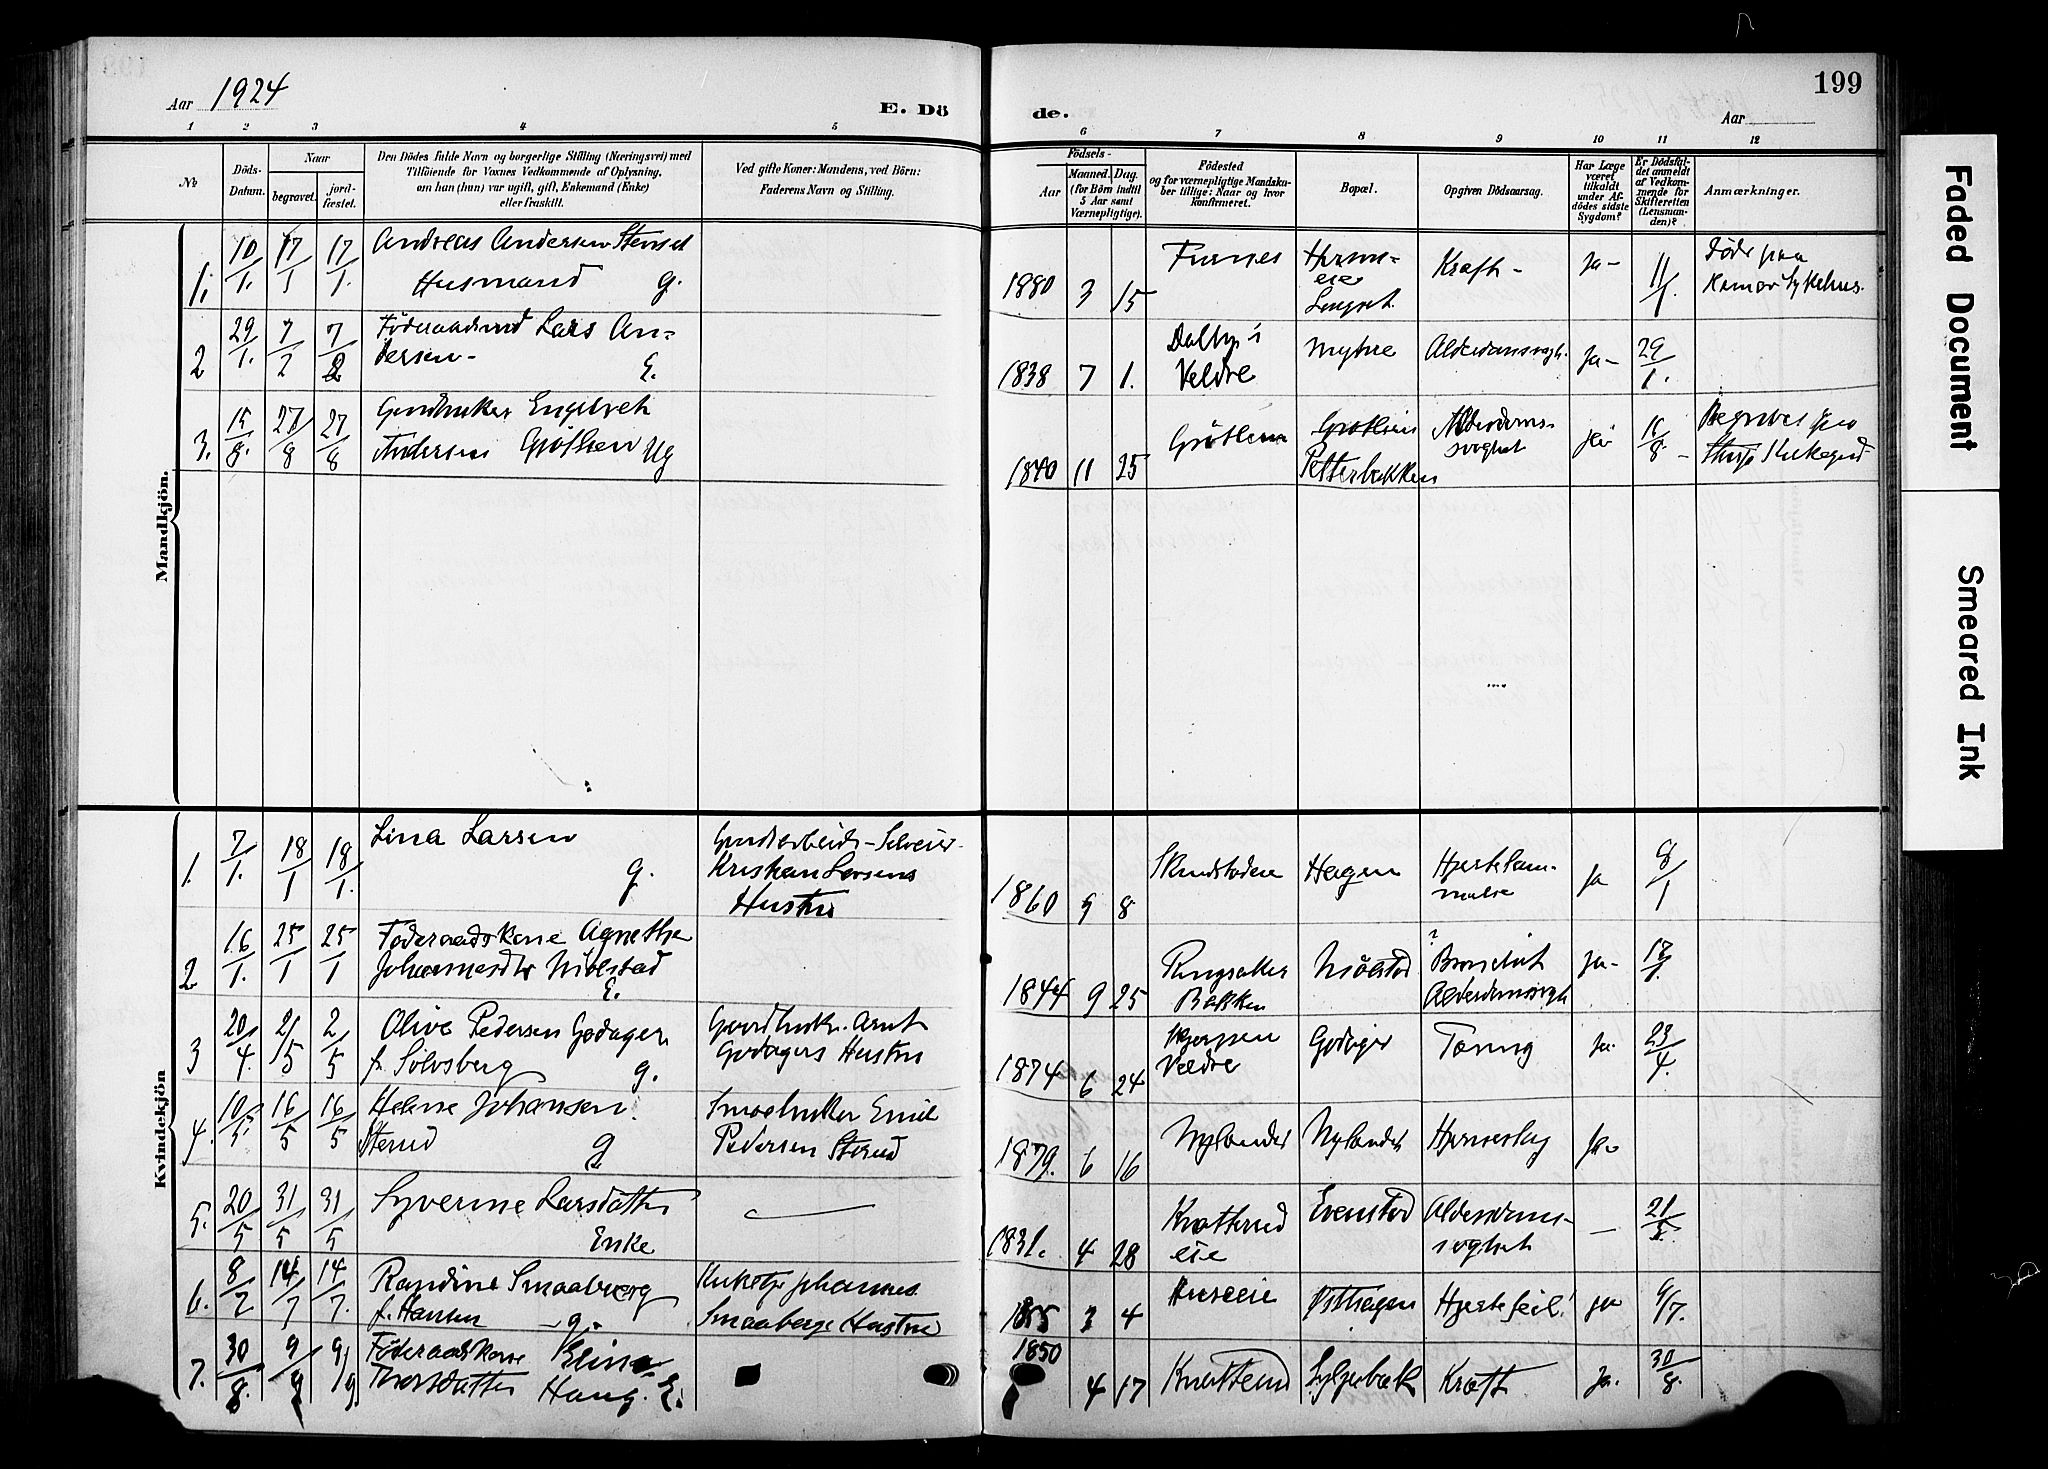 Aar 1924
E. Dö
de.
199
Aar
1 2 3 4 5 6 7 8 9 10 11 12
№
Döds-Datum.
Naar
begravet.
jord-fæstet.
Den Dödes fulde Navn og borgerlige Stilling (Næringsvei) med
Tilföiende for Voxnes Vedkommende af Oplysning,
om han (hun) var ugift, gift, Enkemand (Enke)
eller fraskilt.
Ved gifte Koner: Mandens, ved Börn:
Faderens Navn og Stilling.
Födsels-
Aar
Maaned. Dag.
(for Börn indtil
5 Aar samt
Værnepligtige).
Födested
og for værnepligtige Mandska-
ber tillige: Naar og hvor
konfirmeret.
Bopæl.
Opgiven Dödsaarsag.
Har Læge
været
tilkaldt
under Af-
dödes sidste
Sygdom?
Er Dödsfal-
det anmeldt
af Vedkom-
mende for
Skifteretten
(Lensman-
den)?
Anmærkninger.
Mandkjön.
1. 10/1. 17/1 17/1. Andreas Andersen Stenset
Husmand g.
1880 3 15 Furnes
Kræft - ja - 11/1. Døde paa
Hamar Sykehus.
2 29/1. 7/2 7/2 Föderaadsmd Lars An-
dersen - E.
1838 7 1. Dalby i
Veldre
Myhre Alderdomssvagh. ja - 29/1.
3. 15/8. 27/8 27/8 Gaardbruker Engebret
Andersen Grötlien Ug
1840 11 25 Grötlien Grötlien
Petterbakken Alderdoms-
svaghet 16/8. - Begravet paa
Kirkegrd
Kvindekjön
1. 7/1. 18/1 18/1. Lina Larsen g.
Kristian Larsens
Hustru
1860 9 8 Skredstadeie Hagen Hjertelam-
melse ja 8/1
2 16/1. 25/1 25/1 Föderaadskone Agnethe
Johannesdtr Mölstad E.
1844 9 25 Ringsaker
Bakken Mölstad ? Bronchit
Alderdomssvagh ja - 17/1.
3 20/4. 2/5 2/5 Olive Pedersen Godager
f. Sölvsberg g.
Gaardbruk. Arnt
Godagers Hustru
1874 6 24 Skjerpen
Veldre Godager Tæring ja. 23/4.
4. 10/5. 16/5 16/5 Helene Johansen
Sterud g
Smaabruker Emil
Pedersen Sterud
1879. 6 16 Nylandet Nylandet Hjerneslag ja -
5. 20/5 31/5 31/5 Syverine Larsdatter
Enke
1831. 4 28 Kvatterud
eie Evenstad Alderdoms-
svaghet - 21/5.
6. 8/7 14/7 14/7. Randine Smaaberg
f. Hansen - g. -
Kirketj. Johannes
Smaabergs Hustru
1855 3 4 Østhagen Hjertefeil ja 9/7.
7. 30/8. 9/9 9/9 Föderaadskone Eline
Thorsdatter Haug. E.
1850 4 17 Knatterud Syljubæk Kræft ja. 30/8.
Faded Document
Smeared Ink